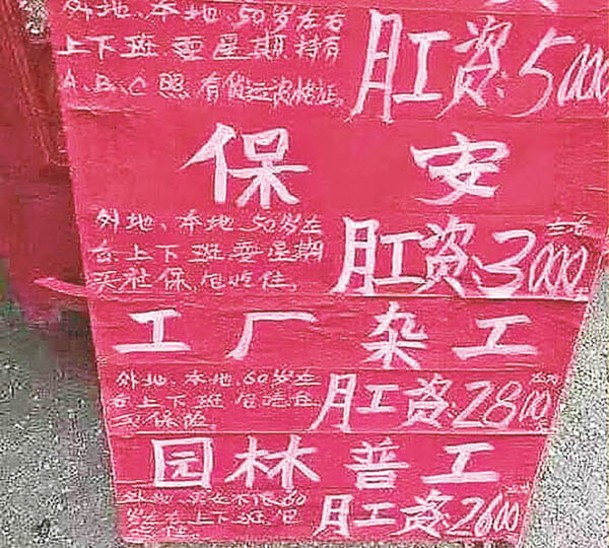 外地、本地、50岁左右
上下班 要星期 持有
A、B、C照 有货运资格证。
月工资:5000
保安
外地、本地50岁左
右上下班要星期
买社保、包吃住。
月工资:3000
左右
工厂杂工
外地、本地、60岁左
右上下班 包吃住
买保险。
月工资:2800
左右
园林普工
外地、男女不限60
岁左右上下班、包
吃住。
月工资:2600